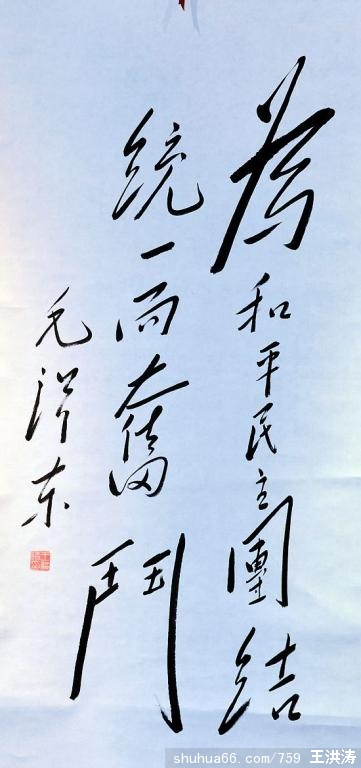 为和平民主團结
统一而奮鬥
毛泽东
shuhua66.com/759 王洪涛